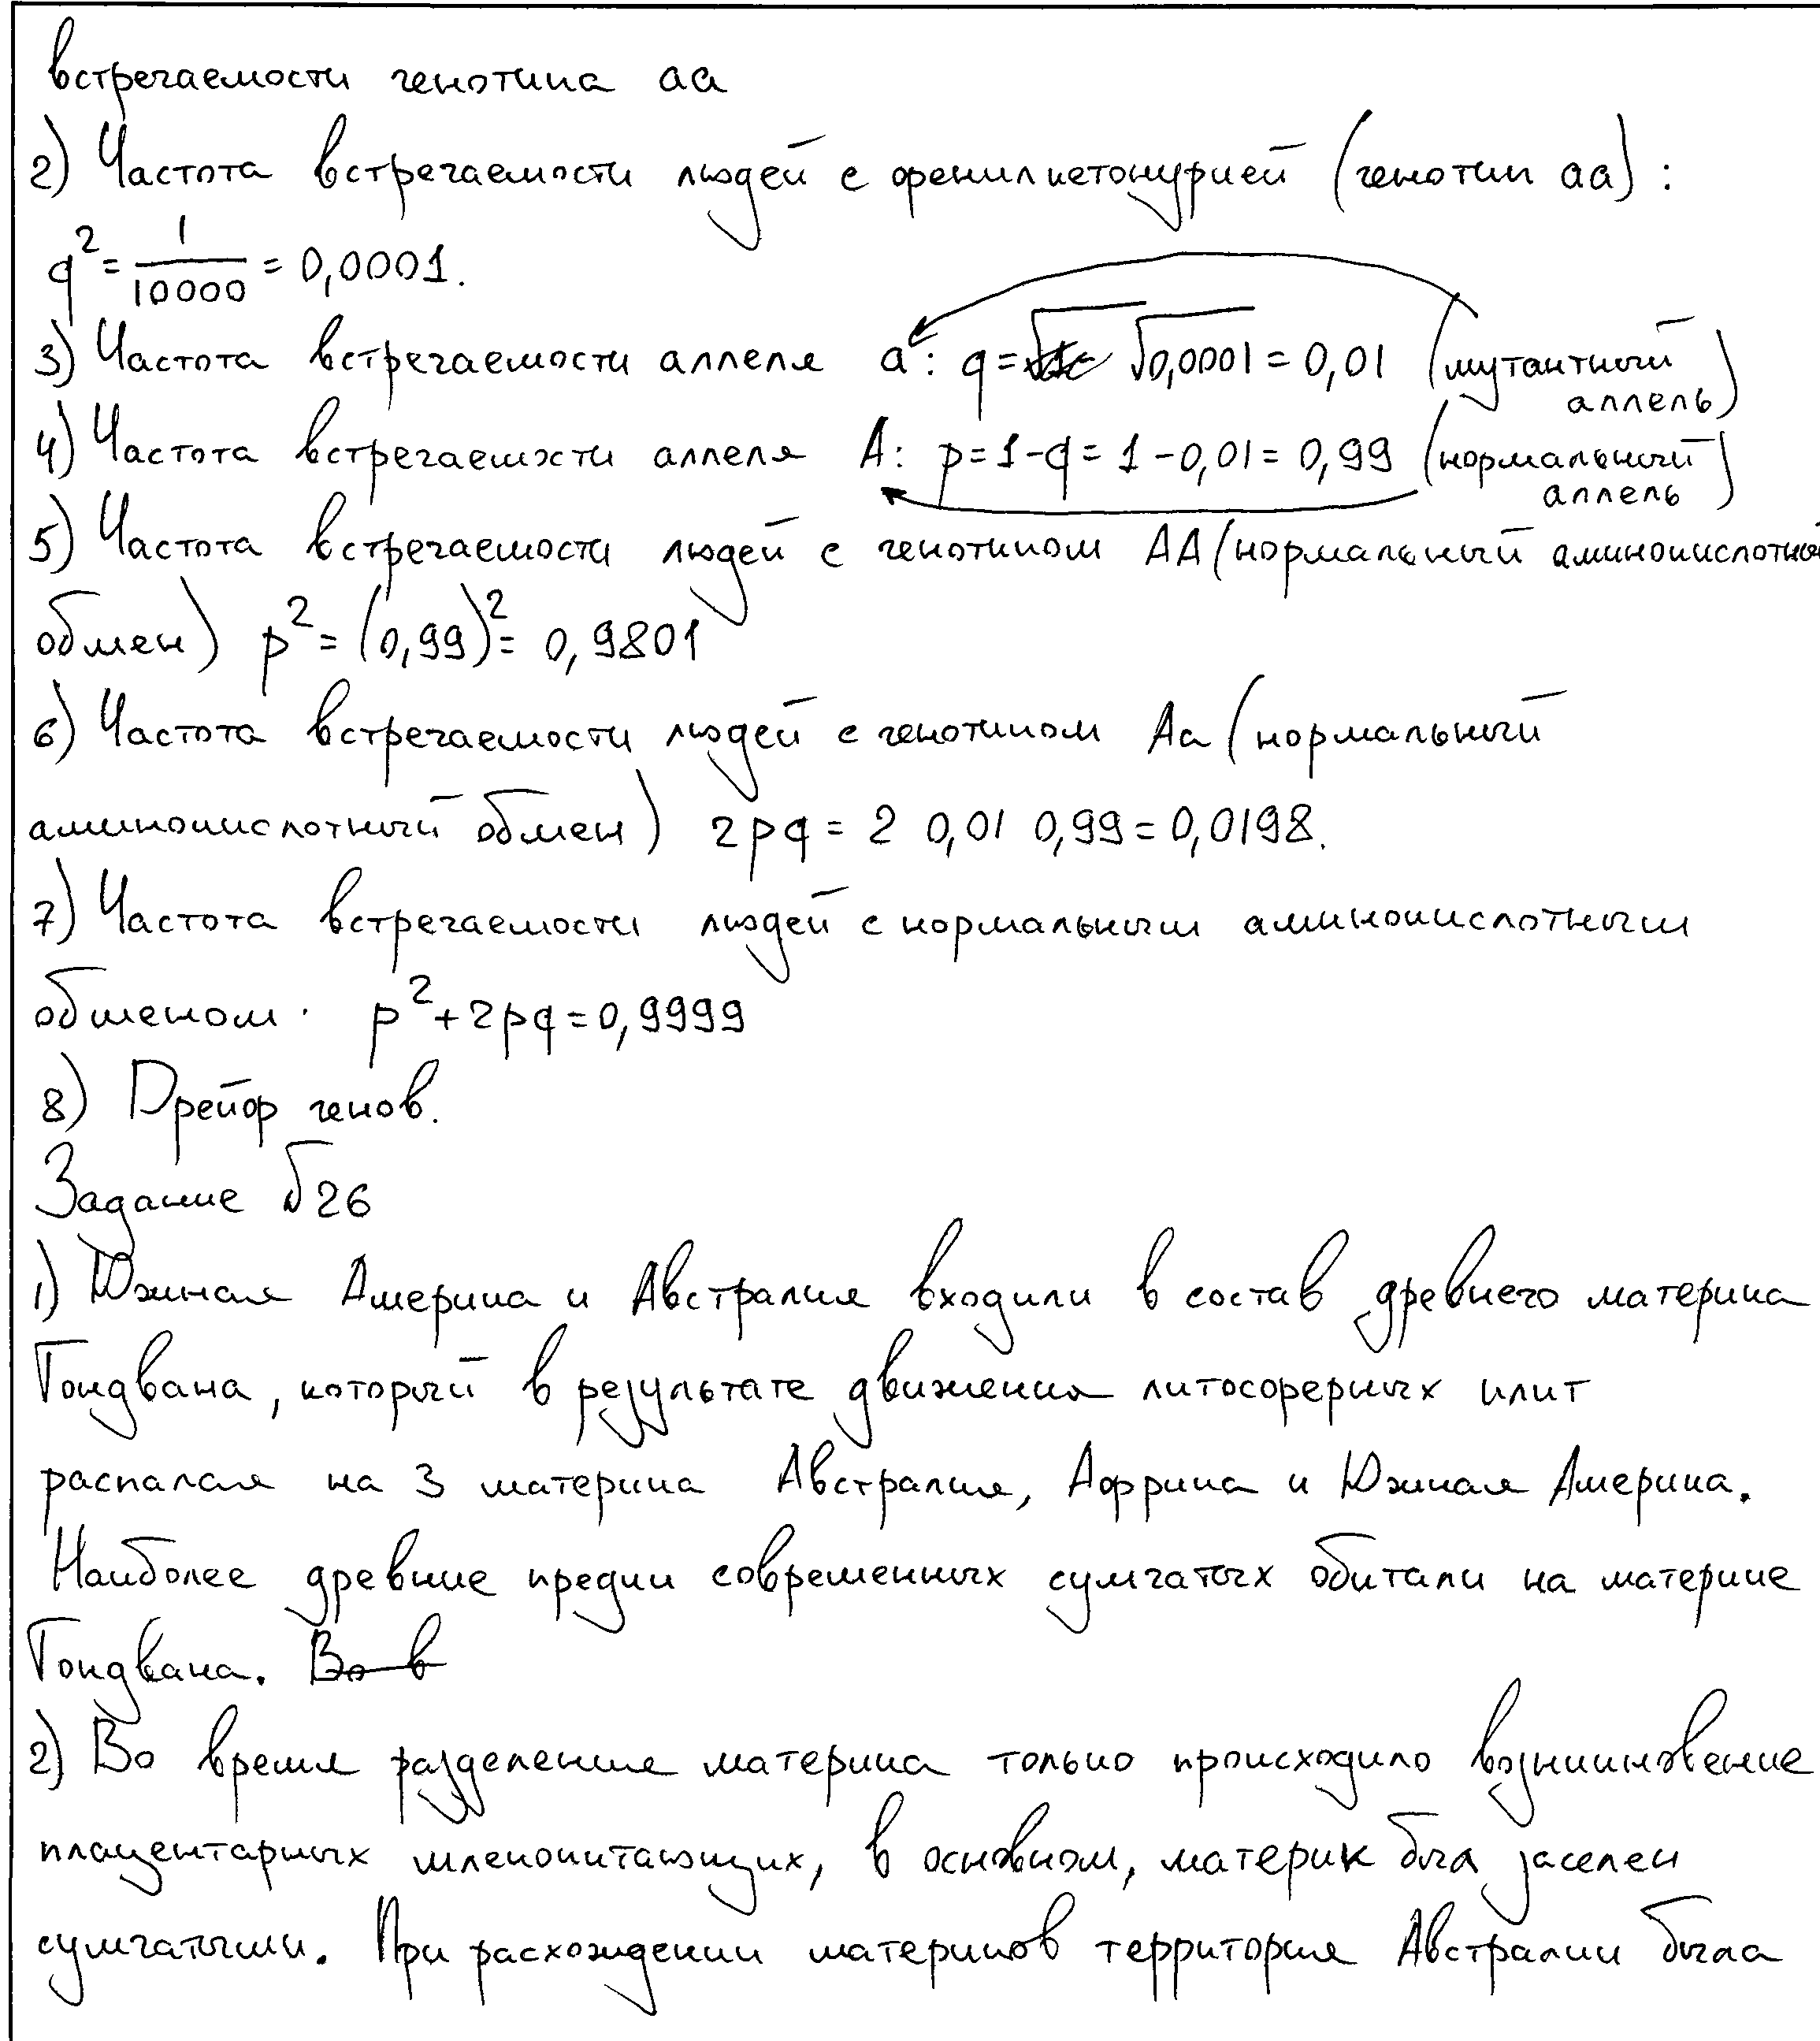 встречаемости генотипа аа
2) Частота встречаемости людей с фенилкетонурией (генотип аа) :
q² = 1/10000 = 0,0001.
3) Частота встречаемости аллеля а: q = √0,0001 = 0,01 (мутантный аллель)
4) Частота встречаемости аллеля А: p = 1-q = 1-0,01 = 0,99 (нормальный аллель)
5) Частота встречаемости людей с генотипом АА (нормальный аминокислотный
обмен) p² = (0,99)² = 0,9801
6) Частота встречаемости людей с генотипом Аа (нормальный
аминокислотный обмен) 2pq = 2 0,01 0,99 = 0,0198.
7) Частота встречаемости людей с нормальным аминокислотным
обменом. p² + 2pq = 0,9999
8) Дрейф генов.
Задание √26
1) Южная Америка и Австралия входили в состав древнего материка
Гондвана, который в результате движения литосферных плит
распался на 3 материка Австралия, Африка и Южная Америка.
Наиболее древние предки современных сумчатых обитали на материке
Гондвана. Во в
2) Во время разделения материка только происходило возникновение
плацентарных млекопитающих, в основном, материк был заселен
сумчатыми. При расхождении материков территория Австралии была